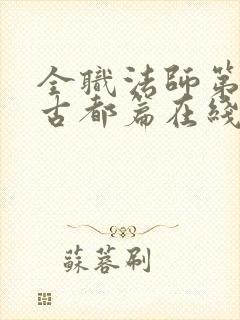 全職法師第
古都篇在綫
蘇蓉刷